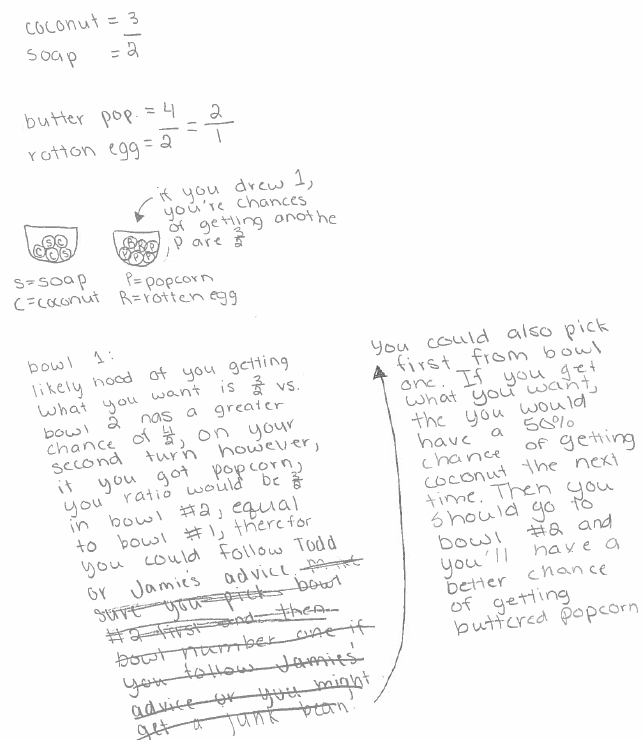 coconut = 3
soap = 2
butter pop. = 4 = 2
rotton egg = 2 1
if you drew 1,
you're chances
of getting anothe
P are 3/2
S C
C C S
R R P
P P P
S=soap P=popcorn
C=coconut R=rotten egg
bowl 1:
likely hood of you getting
what you want is 3/2 vs.
bowl 2 has a greater
chance of 4/2, on your
second turn however,
if you got popcorn,
you ratio would be 3/2
in bowl #2, equal
to bowl #1, therefor
you could follow Todd
or Jamie's advice. make
sure you pick bowl
#2 first and then
bowl number one if
you follow Jamies'
advice or you might
get a junk bean.
you could also pick
first from bowl
one. If you get
what you want,
the you would
have a 50%
chance of getting
coconut the next
time. Then you
should go to
bowl #2 and
you'll have a
better chance
of getting
buttered popcorn